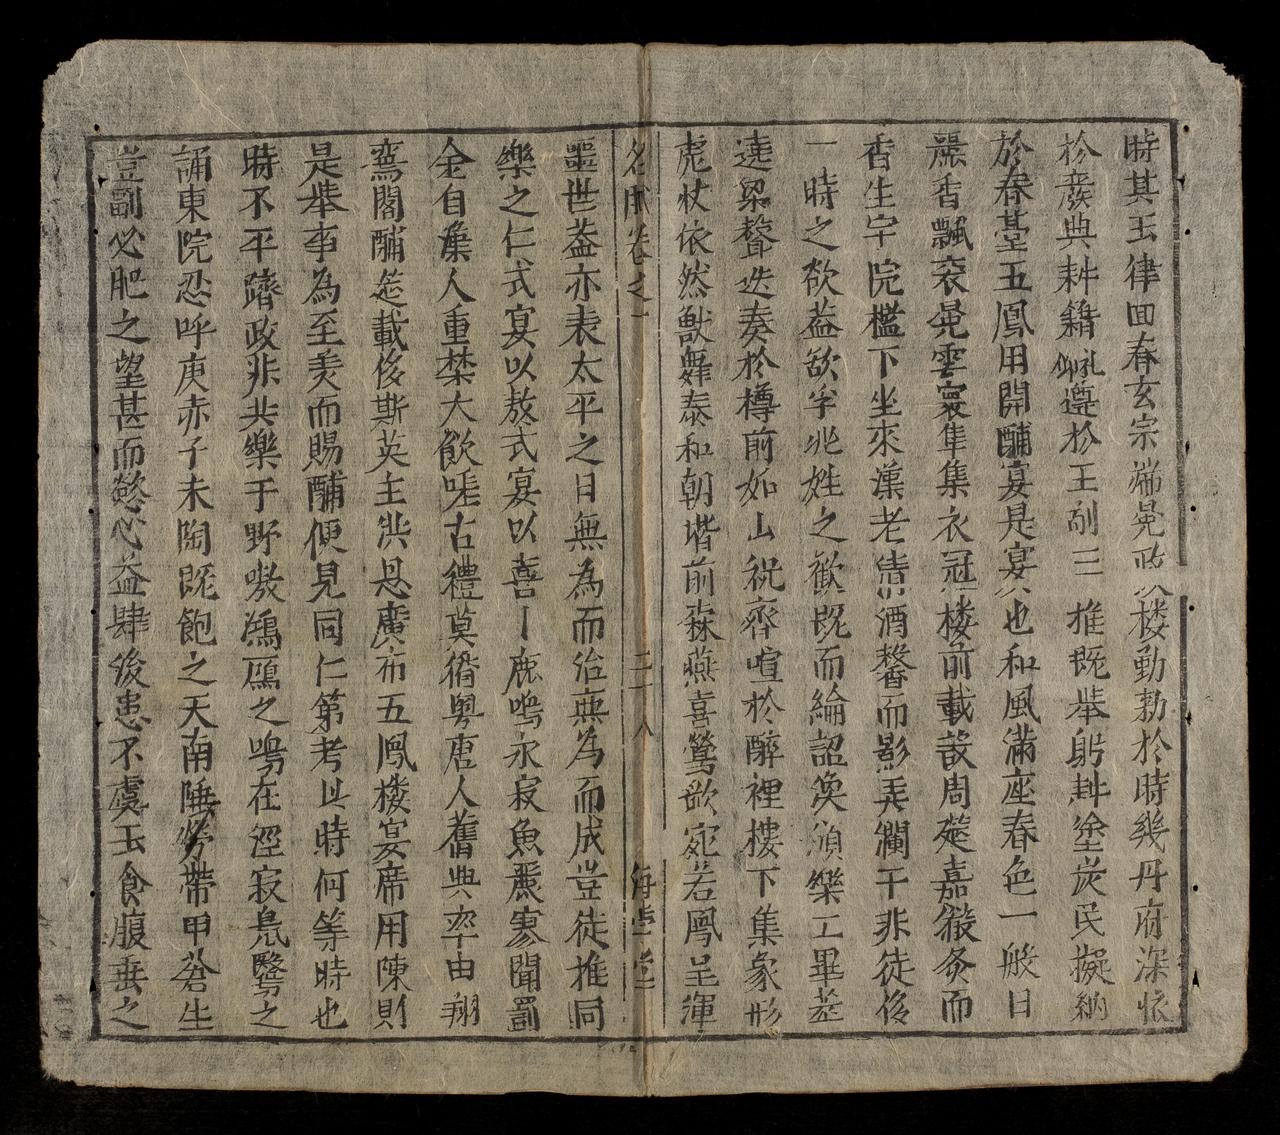 時其玉律回春玄宗端冕政樓勤勑於時幾丹府深依
於農典耕籍佩遵於王制三推既舉躬耕塗炭民擬納
於春臺五鳳用開酺宴是宴也和風滿座春色一般日
麗香飄袞冕雲裳隼集衣冠樓前載設周筵嘉殽奏而
香生宇院檻下坐來漢老清酒馨而影弄闌干非徒俊
一時之欲蓋欲孚兆姓之歡既而綸詔渙頒樂工畢萃
連梁聲迭奏於樽前如山祝齊喧於醉裡樓下集象形
虎杖依然獸舞泰和朝堦前森燕喜鶯歌宛若鳳呈渾
名賦卷之一 二十八 海學堂
噩世蓋亦表太平之日無為而治無為而成豈徒推同
樂之仁式宴以敖式宴以喜丨鹿鳴永寂魚麗寡聞罰
金自漢人重禁大飲嗟古禮莫循粤唐人舊典率由翔
鸞閣酺筵載俊斯英主洪恩廣布五鳳樓宴席用陳則
是舉亊為至美而賜酺便見同仁第考其時何等時也
時不平躋政非共樂于野嗷鴻鴈之鳴在涇寂鳧鷖之
誦東院忍呼庚赤子未陶既飽之天南陲勞帶甲蒼生
豈副必肥之望甚而慾心益肆後患不虞玉食腹垂之